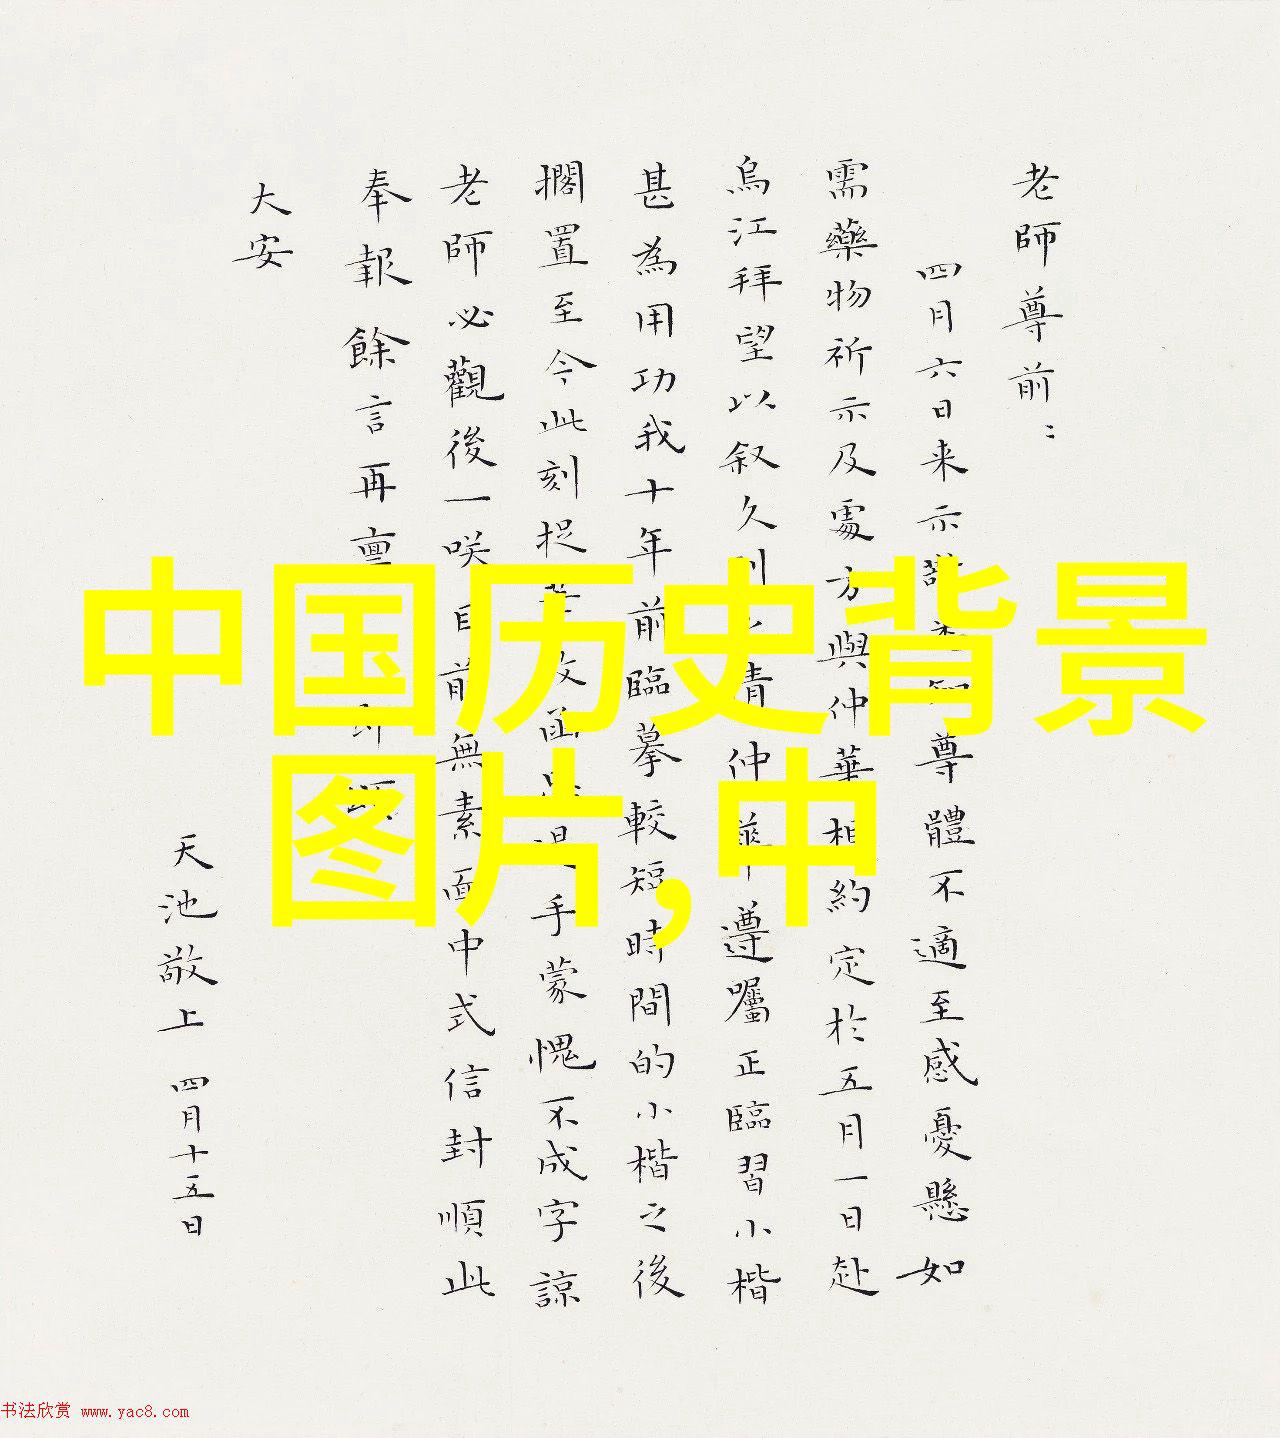 老師尊前：
四月六日来示尊體不適至感憂懸如
需藥物祈示及處方與仲華相約定於五月一日赴
烏江拜望以叙久仲遵囑正臨習小楷
甚為用功我十年前臨摹較短時間的小楷之後
擱置至今此刻捉手蒙愧不成字諒
老師必觀後一咲目前無素面中式信封順此
奉報餘言再
大安
天池敬上 四月十五日
中国历史背景
图片,中
书法欣赏 www.yac8.com